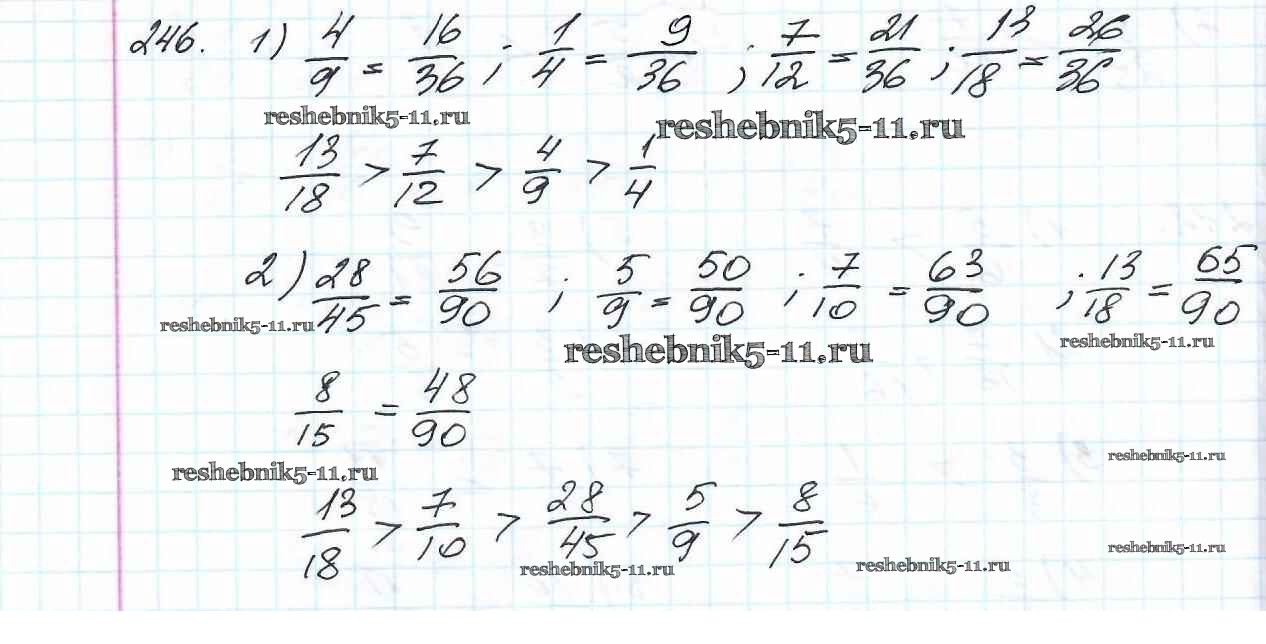 246. 1) 4/9 = 16/36 ; 1/4 = 9/36 ; 7/12 = 21/36 ; 13/18 = 26/36
reshebnik5-11.ru reshebnik5-11.ru
13/18 > 7/12 > 4/9 > 1/4
2) 28/45 = 56/90 ; 5/9 = 50/90 ; 7/10 = 63/90 ; 13/18 = 65/90
reshebnik5-11.ru reshebnik5-11.ru reshebnik5-11.ru
8/15 = 48/90
reshebnik5-11.ru reshebnik5-11.ru
13/18 > 7/10 > 28/45 > 5/9 > 8/15
reshebnik5-11.ru reshebnik5-11.ru reshebnik5-11.ru